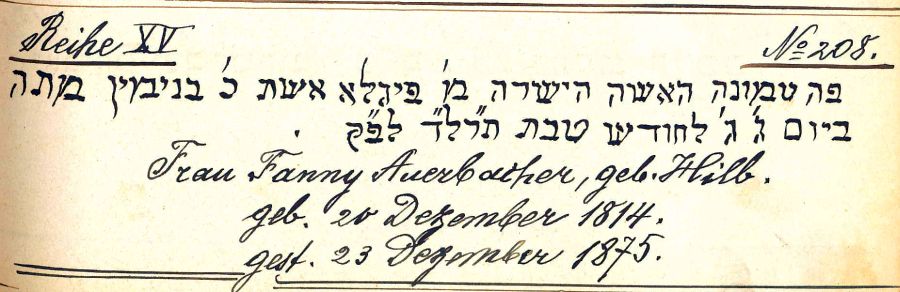 Reihe XV
No 208.
פה טמונה האשה הישרה מ' פיגלא אשת כ' בנימין מתה
ביום ג' ג' לחודש טבת תרל"ד לפ"ק
Frau Fanny Auerbacher, geb. Hilb.
geb. 20 Dezember 1814.
gest. 23 Dezember 1875.